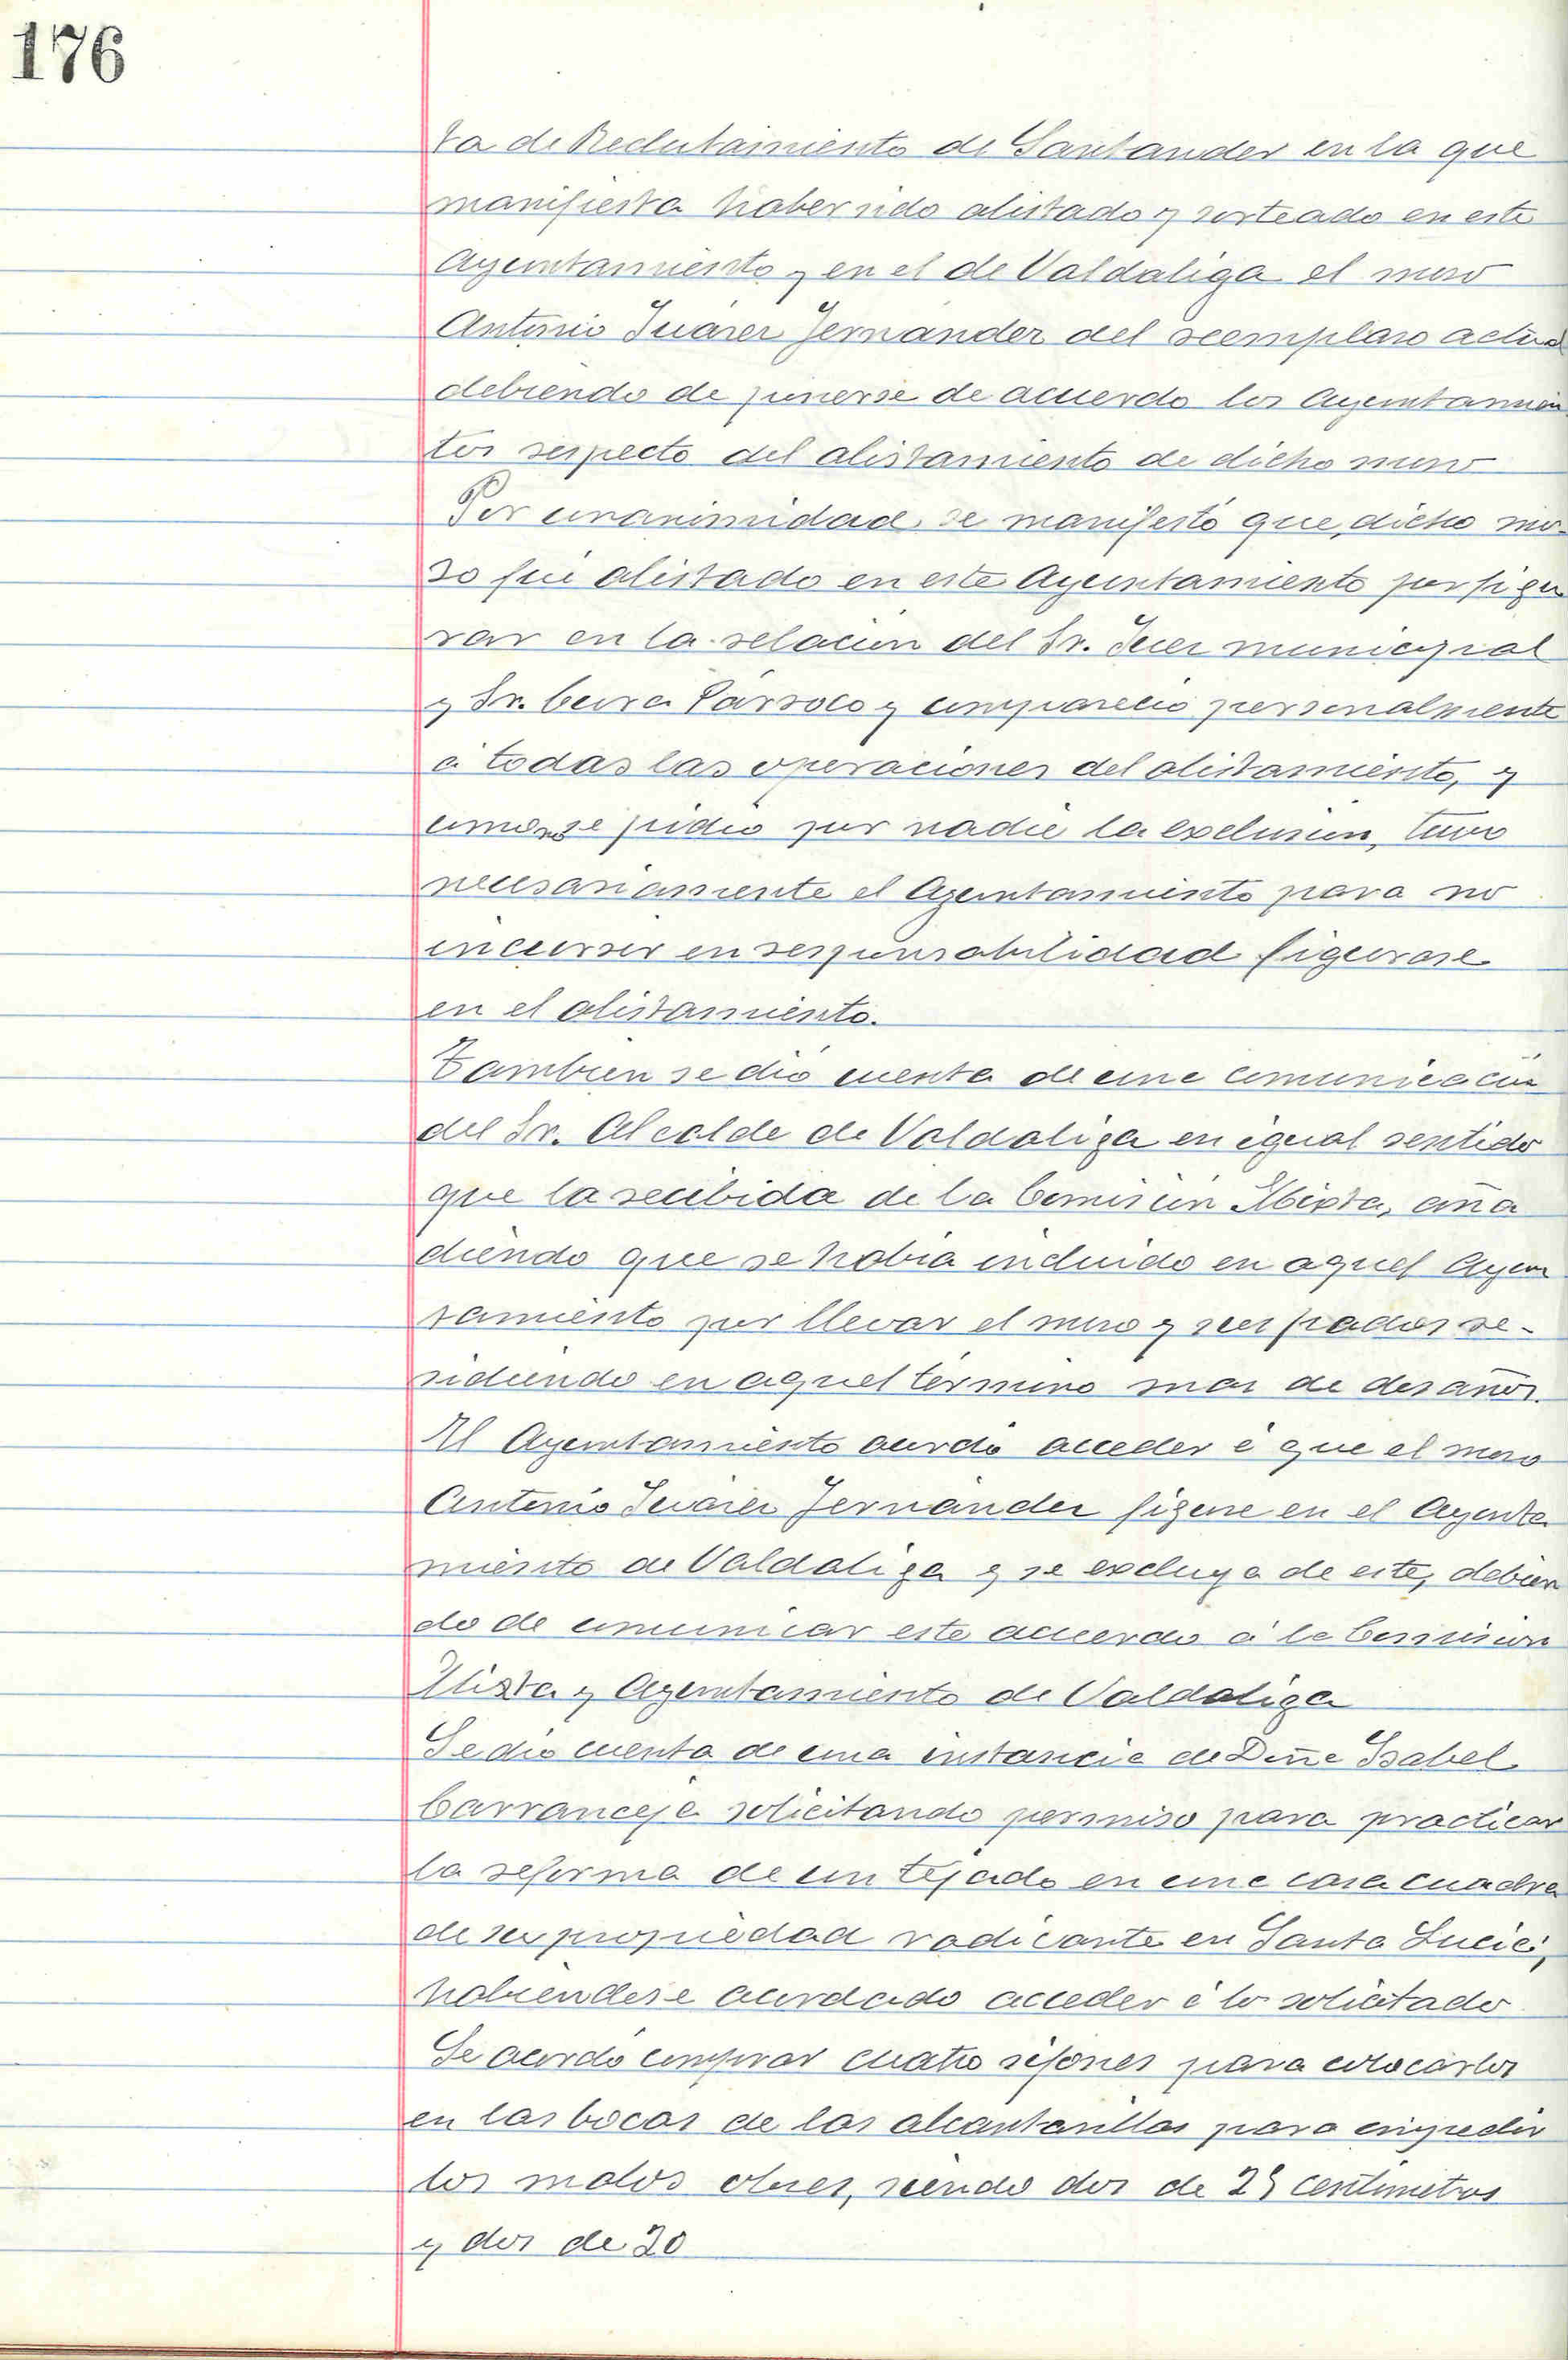 176
ta de Reclutamiento de Santander en la que
manifiesta haber sido alistado y sorteado en este
Ayuntamiento y en el de Valdaliga el moso
Antonio Juárez Fernández del reemplaso actual
debiendo de ponerse de acuerdo los Ayuntamien
tos respecto del alistamiento de dicho moso
Por unanimidad se manifestó que, dicho mo-
so fué alistado en este Ayuntamiento por figu
rar en la relación del Sr. Juez municipal
y Sr. Cura Párroco y compareció personalmente
á todas las operaciones del alistamiento, y
como no se pidió por nadie la exclusión, tuvo
necesariamente el Ayuntamiento para no
incurrir en responsabilidad figurase
en el alistamiento.
Tambien se dió cuenta de una comunicación
del Sr. Alcalde de Valdaliga en igual sentido
que la recibida de la Comisión Mixta, aña
diendo que se habia incluido en aquel Ayun
tamiento por llevar el moso y sus padres re-
sidiendo en aquel término mas de dos años.
El Ayuntamiento acordó acceder á que el moso
Antonio Juárez Fernández figure en el Ayunta
miento de Valdaliga y se excluya de este, debien
do de comunicar este acuerdo á la Comision
Mixta y Ayuntamiento de Valdaliga
Se dió cuenta de una instancia de Doña Isabel
Carranceja solicitando permiso para practicar
la reforma de un tejado en una casa cuadra
de su propiedad radicante en Santa Lucía,
habiendose acordado acceder á lo solicitado
Se acordó comprar cuatro sifones para colocarlos
en las bocas de las alcantarillas para impedir
los malos olores, siendo dos de 25 centimetros
y dos de 20